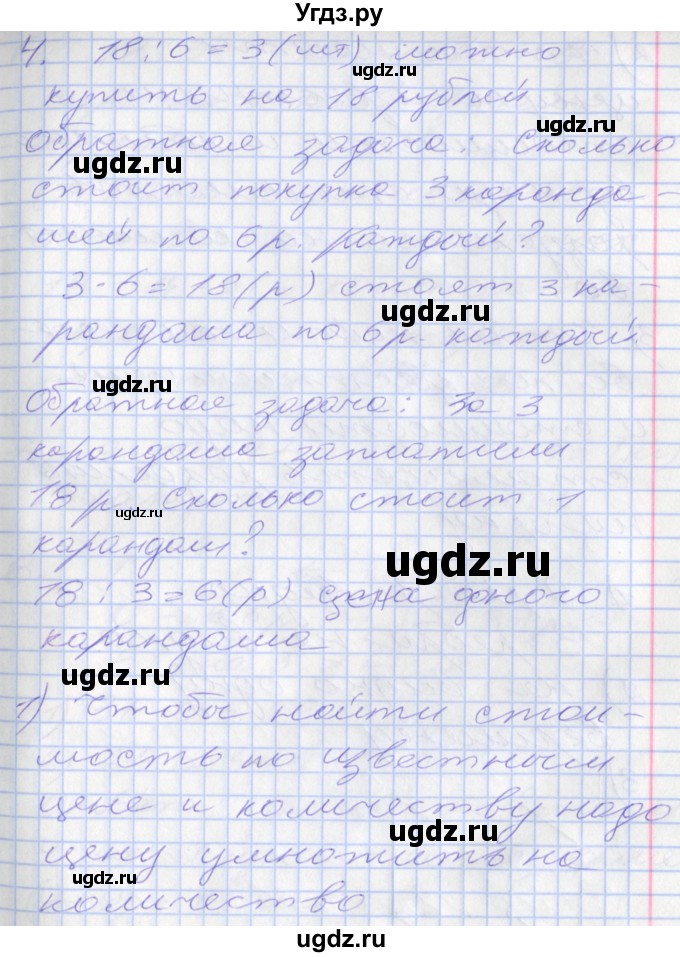 Угдз.ру
4. 18 : 6 = 3 (шт) можно
ugdz.ru
купить на 18 рублей
ugdz.ru
Обратная задача: Сколько
ugdz.ru
ugdz.ru
стоит покупка 3 каранда-
шей по 6 р. каждый?
ugdz.ru
3 · 6 = 18 (р) стоят 3 ка-
рандаша по 6 р. каждый.
ugdz.ru
ugdz.ru
Обратная задача: За 3
карандаша заплатили
18 р. Сколько стоит 1
ugdz.ru
карандаш?
ugdz.ru
18 : 3 = 6 (р) цена одного
карандаша
ugdz.ru
1) Чтобы найти стои-
ugdz.ru
мость по известным
цене и количеству надо
ugdz.ru
цену умножить на
ugdz.ru
количество
ugdz.ru